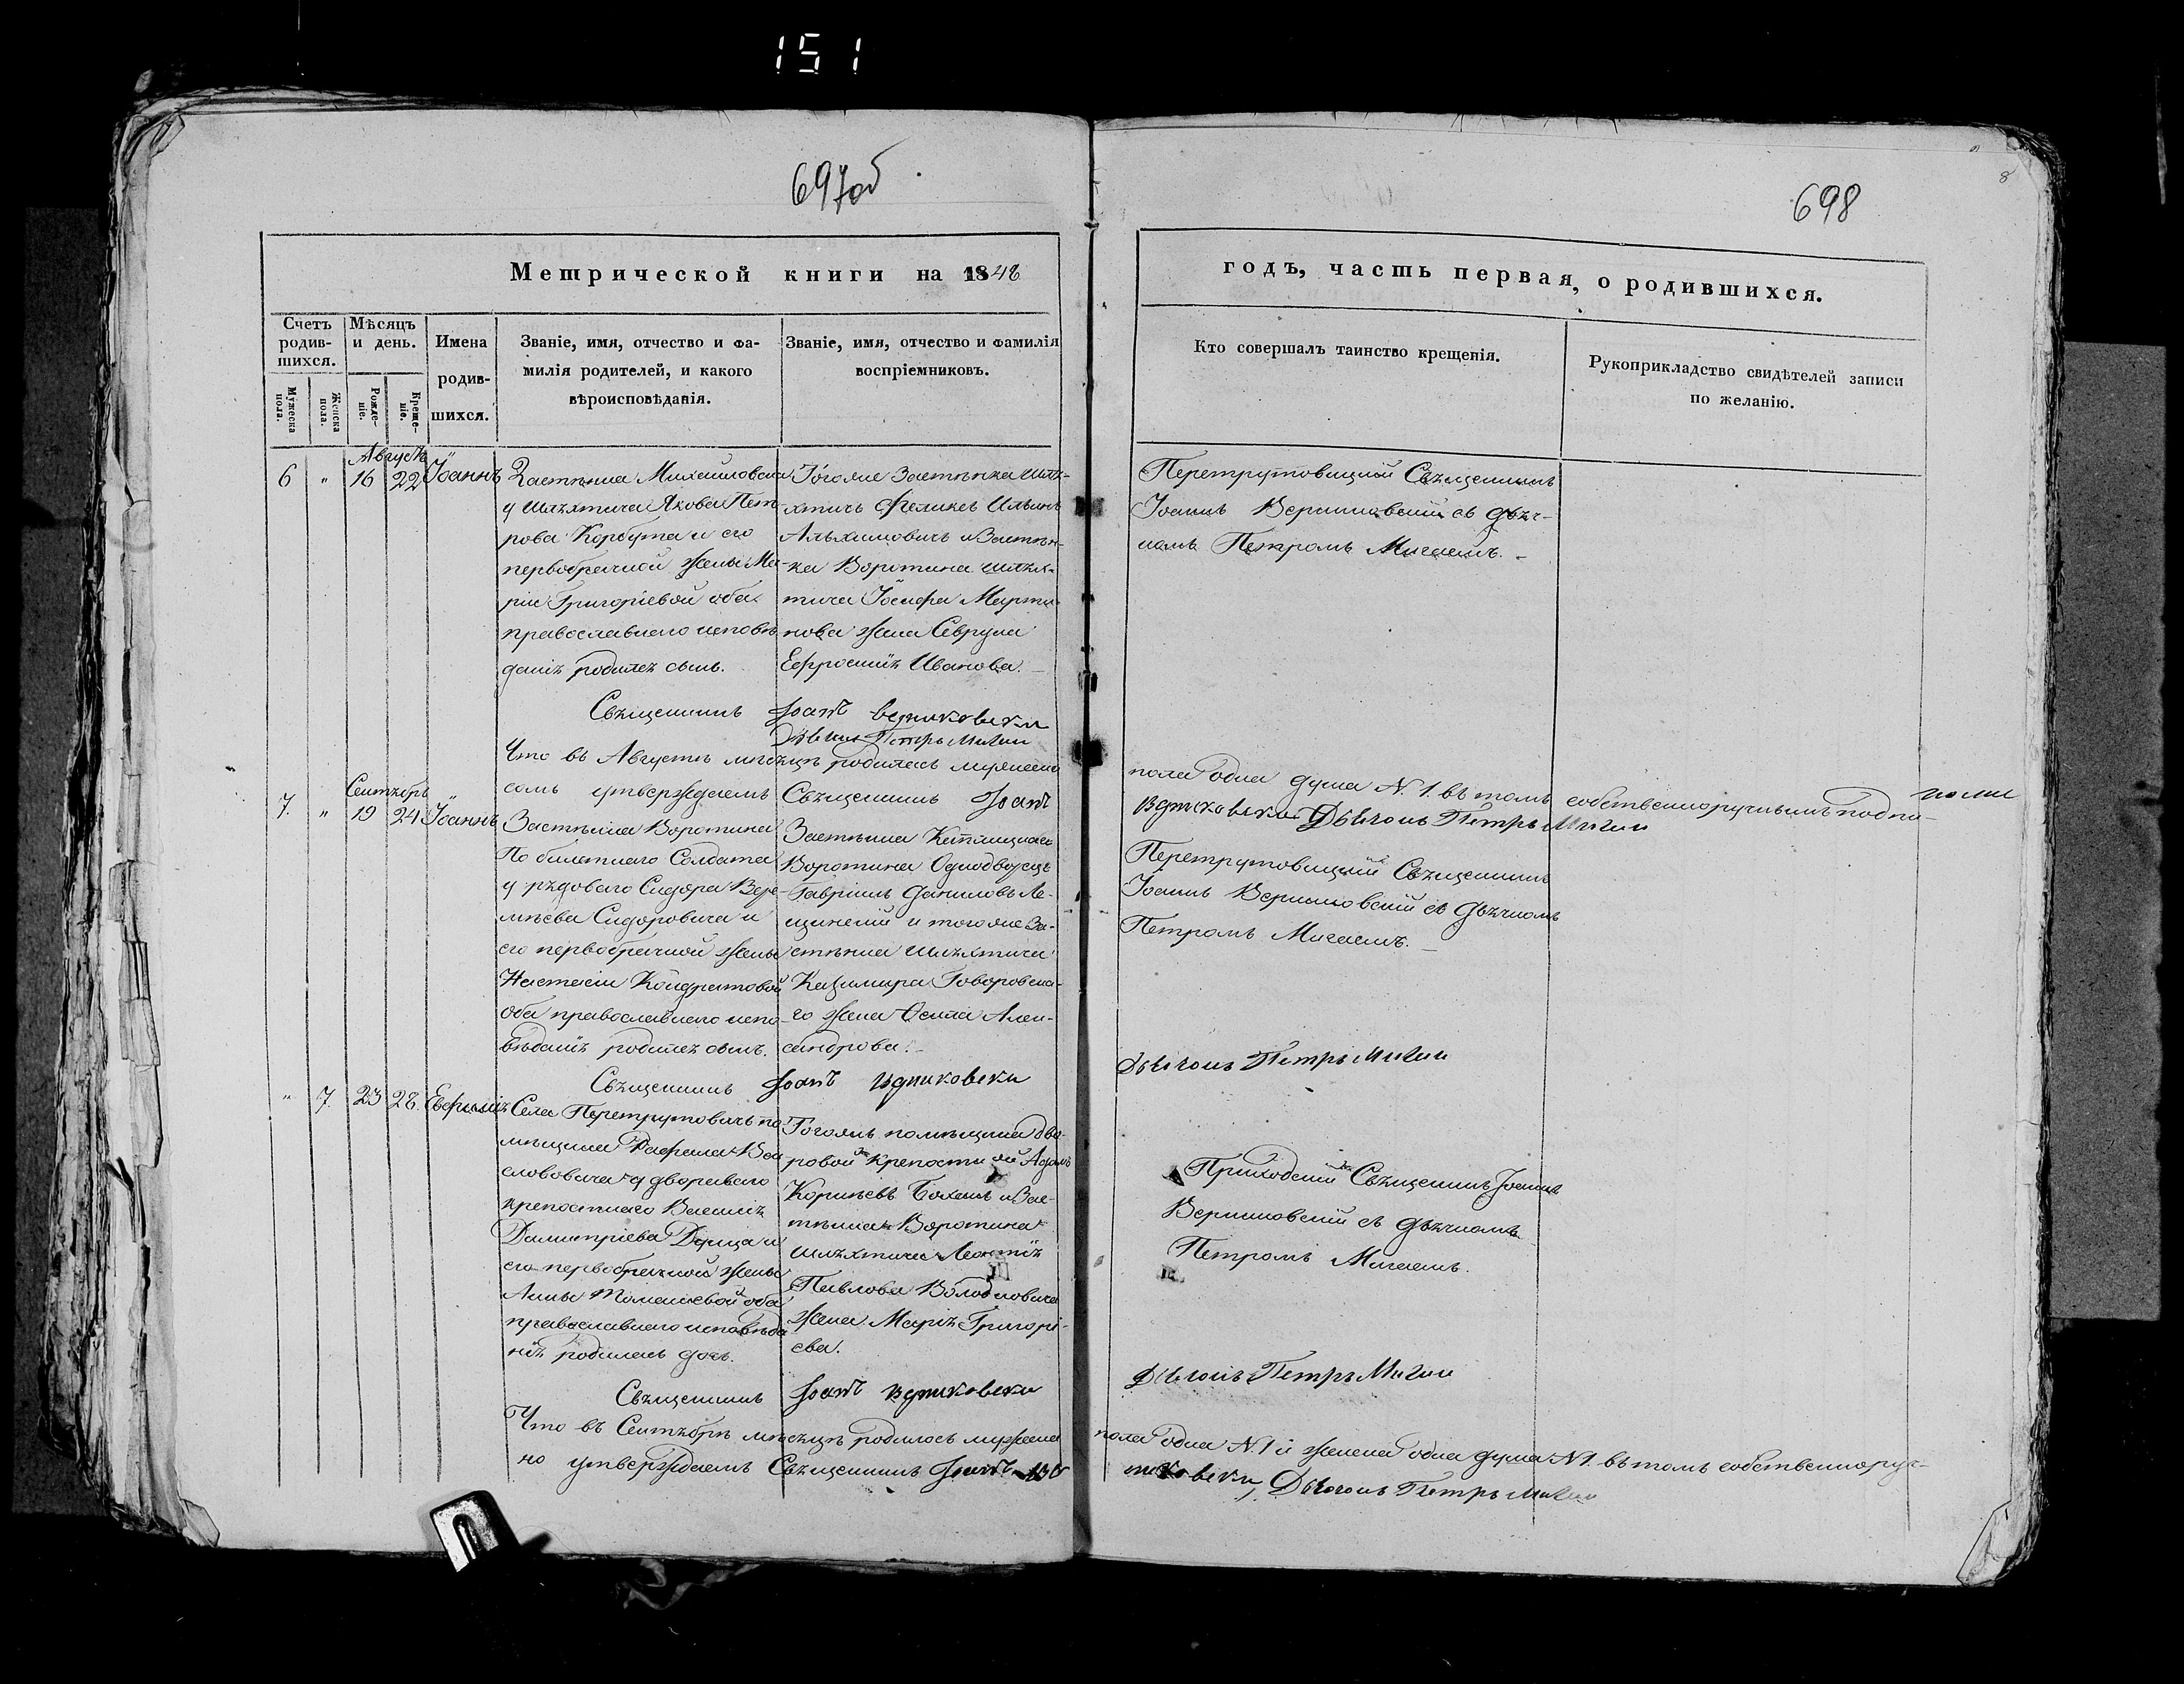 151
697об
698
8
Метрической книги на 1848
годъ, часть первая, о родившихся.
Счетъ родив-шихся.
Мужеска пола.
Женска пола.
Мѣсяцъ и день.
Рожде-ніе.
Креще-ніе.
Имена родив-шихся.
Званіе, имя, отчество и фа-
милія родителей, и какого
вѣроисповѣданія.
Званіе, имя, отчество и фамилія
воспріемниковъ.
Кто совершалъ таинство крещенія.
Рукоприкладство свидѣтелей записи
по желанію.
Августъ
6 " 16 22 Іоаннъ
Застѣнка Михайловска
у Шляхтича Якова Пет-
рова Корбута и его
первобрачной жены Ма-
ріи Григоріевой оба
православнаго исповѣ
данія родился сынъ.
Тогоже Застѣнка Шля-
хтичь Феликсъ Ильинъ
Альхимовичъ и Застѣн-
ка Воротина Шлях-
тича Іосифа Марти-
нова жена
Ефросинія Иванова.
Перетрутовицкій Священникъ
Іоаннъ съ дьяч-
комъ Петромъ
Священникъ Іоаннъ
Петръ
Что въ Августѣ мѣсяцѣ родилась мужеска
пола одна душа N. 1. въ томъ собственноручнымъ подпи-
самъ утверждаемъ Священникъ Іоаннъ
Петръ
Сентябрь
7. " 19 24 Іоаннъ
Застѣнка Воротина
По билетнаго Солдата
у рядоваго Сидора Вере-
мѣева Сидоровича и
его первобрачной жены
Настасіи Кондратовой
оба православнаго испо-
вѣданія родился сынъ.
Застѣнка
Воротина Однодворецъ
Гавріилъ Даниловъ Ле-
щинскій и тогоже За-
стѣнка Шляхтича
Казимира Говоровска-
го жена Алек-
сандрова.
Перетрутовицкій Священникъ
Іоаннъ съ дьячкомъ
Петромъ
Священникъ Іоаннъ
Петръ
" 7. 23 28.
Села Перетрутовичъ по-
мѣщика Рафаила Во-
слововича у двороваго
крепостнаго Василія
Димитріева и
его первобрачной жены
Анны Томашевой оба
православнаго исповѣда
нія родилась дочь.
Тогожъ помѣщика дво-
ровой крепостной Адамъ
Корнѣевъ и Зас-
тѣнка Воротина
Шляхтича Леонтія
Павлова Володковича
жена Марія Григорі-
ева.
Приходскій Священникъ Іоаннъ
съ дьячкомъ
Петромъ
Священникъ Іоаннъ
Петръ
Что въ Сентябрѣ мѣсяцѣ родилось мужеска
пола одна N. 1 и женска одна душа N1. въ томъ собственноруч-
но утверждаемъ Священникъ Іоаннъ
Петръ